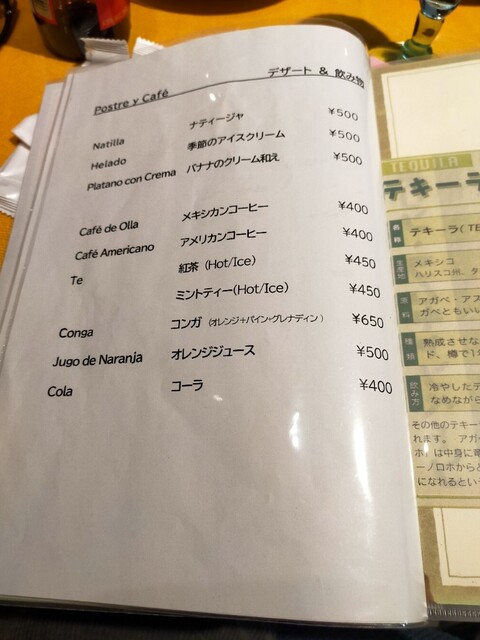 Postre y Café デザート & 飲み物
Natilla ナティージャ ¥500
Helado 季節のアイスクリーム ¥500
Platano con Crema バナナのクリーム和え ¥500
Café de Olla メキシカンコーヒー ¥400
Café Americano アメリカンコーヒー ¥400
Te 紅茶 (Hot/Ice) ¥450
ミントティー(Hot/Ice) ¥450
Conga コンガ (オレンジ+パイン+グレナディン) ¥650
Jugo de Naranja オレンジジュース ¥500
Cola コーラ ¥400
TEQUILA
テキーラ
名称 テキーラ( TE
生産地 メキシコ
ハリスコ州、タ
原料 アガベ・アス
ガベともいい
種類 熟成させな
ド、樽で1年
飲み方 冷やしたテ
なめながら
その他のテキー
れます。 アガ
ボ」は中身に竜
ーノロホからと
になれるという